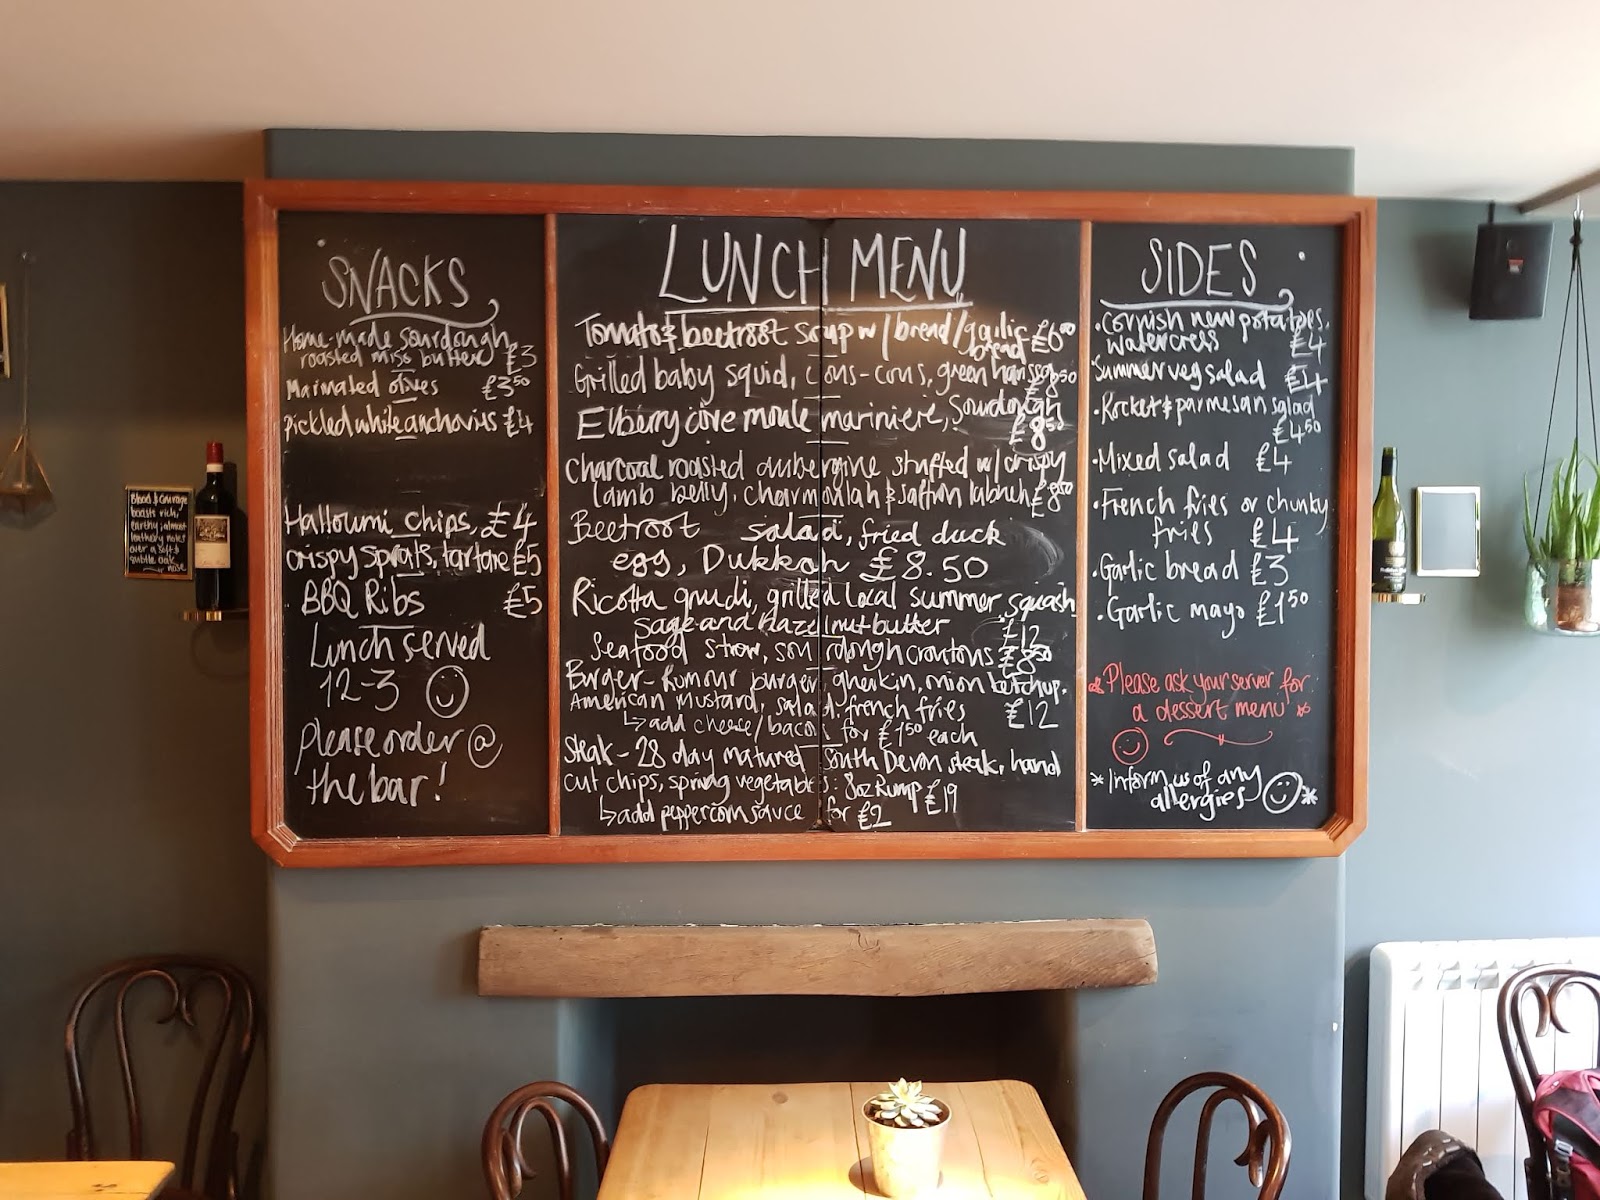 SNACKS
Home-made sourdough
roasted miso butter £3
Marinated olives £3.50
Pickled white anchovies £4
Halloumi chips, £4
crispy sprats, tartare £5
BBQ Ribs £5
Lunch served
12-3
please order @
the bar!
LUNCH MENU
Tomato & beetroot soup w/ bread/garlic
bread £6.00
Grilled baby squid, cous-cous, green harissa £8.50
Elberry cove moule mariniere, sourdough
£8.50
Charcoal roasted aubergine stuffed w/ crispy
lamb belly, charmoulah & saffron labneh £8.50
Beetroot salad, fried duck
egg, Dukkah £8.50
Ricotta gnudi, grilled local summer squash
sage and hazelnut butter £12
Seafood stew, sourdough croutons £8.50
Burger - Rumour burger, gherkin, onion ketchup,
American mustard, salad, french fries £12
↳ add cheese/bacon for £1.50 each
Steak - 28 day matured South Devon steak, hand
cut chips, spring vegetables: 8oz Rump £19
↳ add peppercorn sauce for £2
SIDES
• Cornish new potatoes,
watercress £4
• Summer veg salad £4
• Rocket & parmesan salad
£4.50
• Mixed salad £4
• French fries or chunky
fries £4
• Garlic bread £3
• Garlic mayo £1.50
* Please ask your server for
a dessert menu *
* Inform us of any
allergies *
Blood & Courage
boasts rich,
earthy, almost
leathery notes
over a soft &
subtle oak